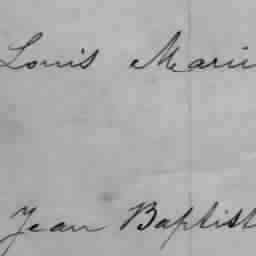 Louis Marie
Jean Baptist